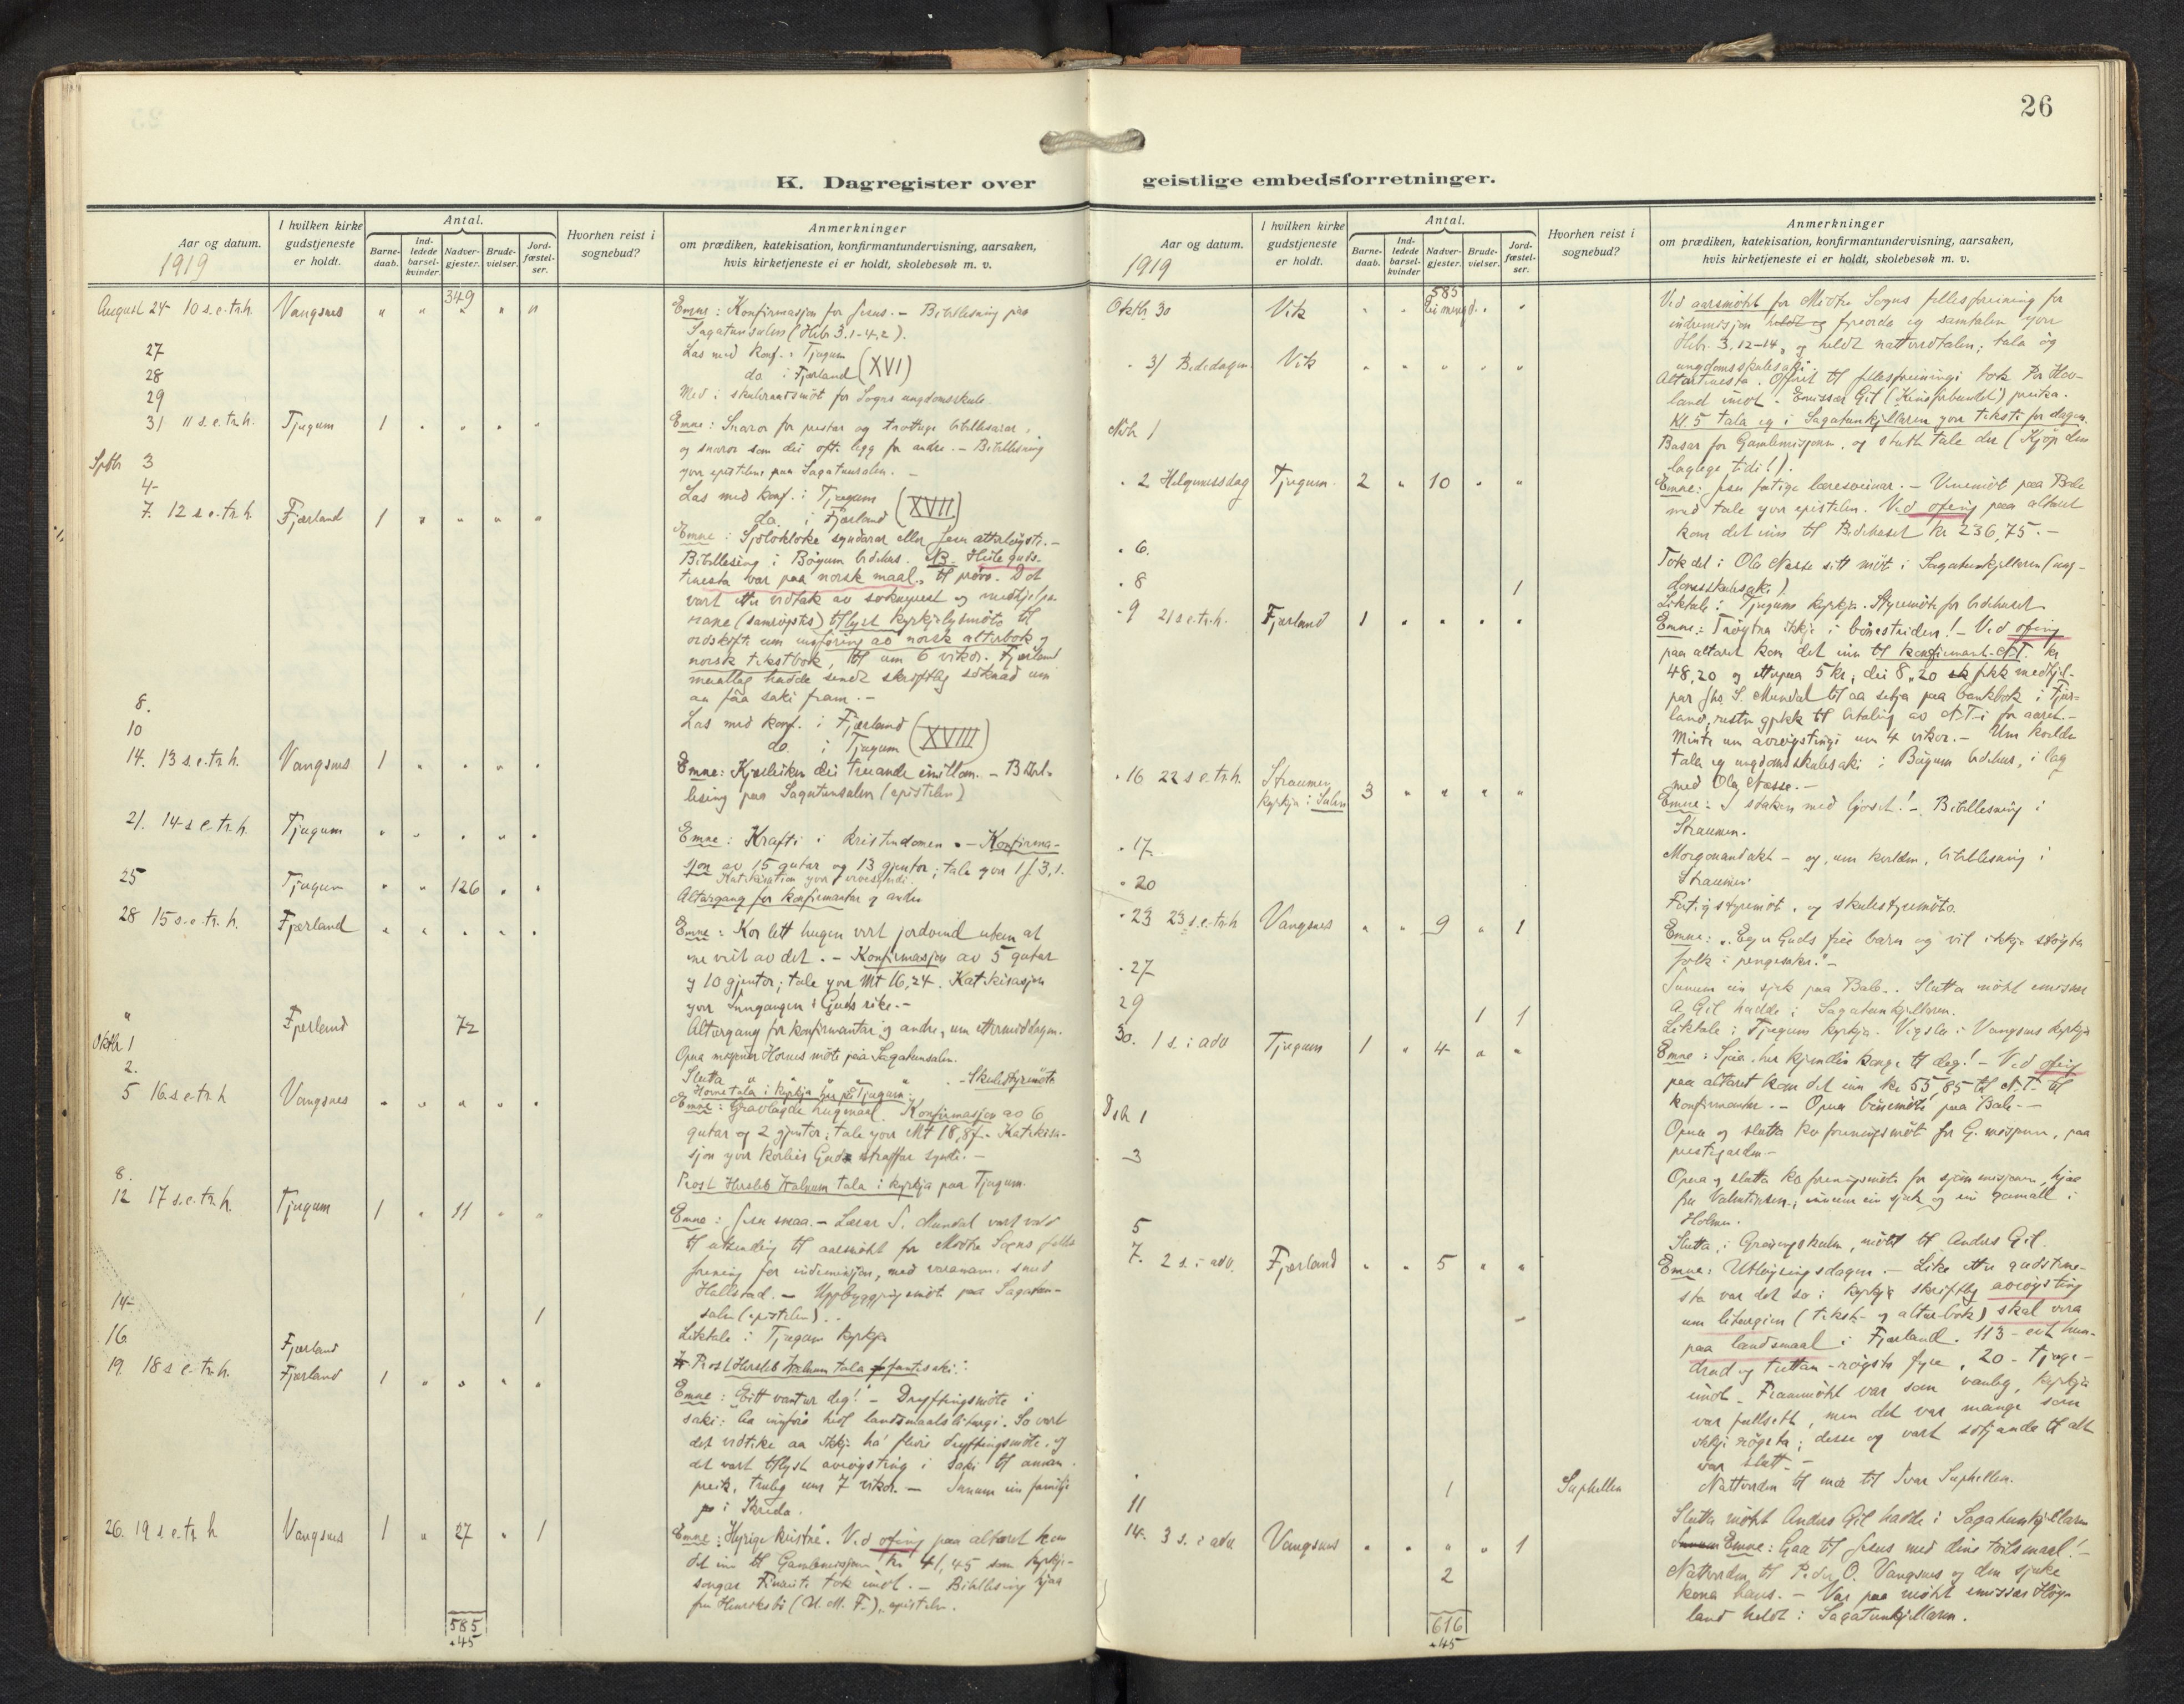 26
K. Dagregister over
geistlige embedsforretninger.
Aar og datum.
1919
I hvilken kirke gudstjeneste er holdt.
Antal.
Barne-daab.
Ind-ledede barsel-kvinder.
Nadver-gjester.
Brude-vielser.
Jord-fæstel-ser.
Hvorhen reist i sognebud?
Anmerkninger
om prædiken, katekisation, konfirmantundervisning, aarsaken,
hvis kirketjeneste ei er holdt, skolebesøk m. v.
349
August 24 10 s. e. tr. h. Vangsnes " " " " "
Emne: Konfirmasjon for Jesus. – Bibellesning paa
Sagatunsalen (Hebr. 3.1-4,2).
27 Las med konf. i Tjugum
28 do i Fjærland (XVI)
29 Med i skuleraadsmöt for Sogns ungdomsskule
31 11 s. e. tr. h. Tjugum 1 " " " "
Emne: Snaror for prestar og bibellesarar,
og snaror som dei oft legg for andre. – Bibellesning
yver epistelen paa Sagatunsalen. –
Septbr 3 Las med konf. i Tjugum
4 do. i Fjærland (XVII)
7. 12 s. e. tr. h. Fjærland 1 " " " "
Emne: syndarar eller –
Bibellesing i Böyum bedehus. NB. Heile guds-
tenesta var paa norsk maal, til pröve. Det
vart etter vedtak av soknerest og medhjelpa-
rane (samröystes) tillyst kyrkjelydsmöte til
ordskifte um innföring av norsk altarbok og
norsk tekstbok, til um 6 vikor. Fjærland
maallag hadde sendt skriftleg söknad um
aa faa saki fram. –
8. Las med konf. i Fjærland
10 do. i Tjugum (XVIII)
14. 13 s. e. tr. h. Vangsnes 1 " " " "
Emne: Kjærleiken dei truande imillom. – Bibel-
lesing paa Sagatunsalen (epistelen)
21. 14 s e tr. h. Tjugum " " " " "
Emne: Krafti i kristendomen. – Konfirma-
sjon av 15 gutar og 13 gjentor; tale yver 1 J. 3,1.
Katekisation yver arvesyndi.
25 Tjugum " " 126 " "
Altargang for konfirmantar og andre
28 15 s. e. tr. h. Fjærland " " " " "
Emne: Kor lett hugen vert jordvend uten at
me veit av det. – Konfirmasjon av 5 gutar
og 10 gjentor; tale yver Mt 16,24. Katekisasjon
yver Inngangen i Guds rike. –
" Fjærland 72
Altargang for konfirmantar og andre, um ettermiddagen.
Oktbr 1 Opna Hornes möte paa Sagatunsalen.
2. Slutta " " " " – Skulestyremöte
Horne tala i kyrkja her paa Tjugum.
5 16. s e tr h Vangsnes " " " " "
Emne: Gravlagde hugmaal. Konfirmasjon av 6
gutar og 2 gjentor; tale yver Mt 18,8f. Katekisa-
sjon yver korleis Gud straffar syndi. –
8. Prost Hersleb tala i kyrkja paa Tjugum.
12 17 s. e. tr. h. Tjugum 1 " 11 " "
Emne: Jesu smaa. – Lærar S. Mundal vart vald
til utsending til aarsmötet for Midtre Sogns felles
forening for indremisjon, med varamann
Hallstad. – Uppbyggjingsmöte paa Sagatun-
salen (epistelen).
14 1 Liktale i Tjugum kyrkja
16 Fjærland Prost Hersleb tala i fantesaki.
19. 18 s e. tr. h. Fjærland 1 " " " "
Emne: Eitt vantar deg! – Dryftingsmöte i
saki: aa innföra heil landsmaalsliturgi. So vart
det vedteke aa ikkje ha fleire dryftingsmöte, og
det vart tillyst avröysting i saki til annan
preik, truleg um 7 vikor. – Innum ein familje
i Skreda.
26. 19 s e. tr h Vangsnes 1 " 27 " 1
Emne: Hyrige kristne. Ved ofring paa altaret kom
det inn til Gamlemisjonen kr 41,45 som kyrkje-
songar tok imot. – Bibellesing hjaa
fru Henriksbö (U. M. F.), epistelen.
585
+45
Aar og datum.
1919
I hvilken kirke gudstjeneste er holdt.
Antal.
Barne-daab.
Ind-ledede barsel-kvinder
Nadver-gjester.
Brude-vielser.
Jord-fæstel-ser.
Hvorhen reist i sognebud?
Anmerkninger
om prædiken, katekisation, konfirmantundervisning, aarsaken,
hvis kirketjeneste ei er holdt, skolebesøk m. v.
585
Oktbr 30 Vik " " Ei mengd " "
Ved aarsmötet for Midtre Sogns fellesforeining for
indremisjon heldt eg fyreorda og samtalen yver
Hebr. 3,12-14, og heldt nattverdtalen; tala og
ungdomsskulesaki.
" 31 Bededagen Vik " " " " "
Altartenesta. Offret til fellesforeiningi tok Per Hov-
land imot. Emissær Gil (Kinaforbundet) preika.
Kl. 5 tala eg i Sagatunkjellaren yver teksti for dagen.
Novbr 1 Basar for Gamlemisjonen, og slutta tale der (Kjöp den
laglege tidi!).
" 2 Helgemessdag Tjugum 2 " 10 " "
Emne: Jesu fatige læresveinar. – Vinemöt paa Bale
med tale yver epistelen. Ved ofring paa altaret
kom det inn til Bedehuset kr 236,75. –
" 6. Tok del i Ola Nesse sitt möt i Sagatunkjellaren (ung-
domsskulesaki)
" 8 1 Liktale i Tjugum kyrkja. Styremöte for bedehuset
" 9 21 s e. tr. h. Fjærland 1 " " " "
Emne: Tröytna ikkje i bönestriden! – Ved ofring
paa altaret kom det inn til konfirmant-N.T. kr
48,20 og ettepaa 5 kr; dei 8,20 fekk medhjel-
par Jho. S. Mundal til aa setja paa bankbok i Fjær-
land, resten gjekk til betaling av N.T-i for aaret. –
Minte um avröystingi um 4 vikor. – Um kvelden
tala eg ungdomsskulesaki i Böyum bedehus, i lag
med Ola Nesse. –
" 16 22 s e. tr. h. Straumen kyrkja i Sulen 3 " " " "
Emne: I staken med ljoset! – Bibellesning i
Straumen.
" 17 Morgonandakt – og, um kvelden, bibellesning i
Straumen
" 20 Fatigstyremöt, og skulestyremöte.
" 23 23 s. e. tr. h Vangsnes " " 9 " 1
Emne: "Eg er Guds frie barn og vil ikkje stöyta
folk i pengesaker." –
" 27 Innum ein sjuk paa Bale. Slutta mötet emissær
A. Gil hadde i Sagatunkjellaren.
29 1 1 Liktale i Tjugum kyrkja. Vigsla i Vangsnes kyrkja
30. 1 s. i adv Tjugum 1 " 4 " "
Emne: Sjaa, her kjem din konge til deg! – Ved ofring
paa altaret kom det inn kr 55,85 til N.T. til
konfirmantar. – Opna bönemöte paa Bale. –
Desbr 1 Opna og slutta kv.foreningsmöt for G. misjonen, paa
prestegarden –
3 Opna og slutta kv.foreningsmöte for sjömannsmisjonen, hjaa
fru Valentinsen; innum ein sjuk og ein gamall i
Holmen.
5 Slutta, i Grøningskulen, mötet til Anders Gil.
7. 2 s. i adv. Fjærland " " 5 " "
Emne: Utløysingsdagen. – Like etter gudstene-
sta var det so i kyrkja skriftleg avröysting
um liturgien (tekst- og altarbok) skal vera
paa landsmaal i Fjærland. 113 – eit hun-
drad og trettan – röysta fyre, 20 – tjuge –
imot. Frammötet var som vanleg, kyrkja
var fullsett, men det var mange som
ikkje röysta; desse og vart sitjande til alt
var slutt. –
" 1 Suphellen Nattverden til mor til Ivar Suphellen.
11 Slutta mötet Anders Gil hadde i Sagatunkjellaren
14. 3 s. i adv Vangsnes " " " " 1
Emne: Gaa til Jesus med dine tvilsmaal! –
2 Nattverden til Peder O. Vangsnes og den sjuke
kona hans. – Var paa mötet emissær Höy-
land heldt i Sagatunkjellaren.
616
+45